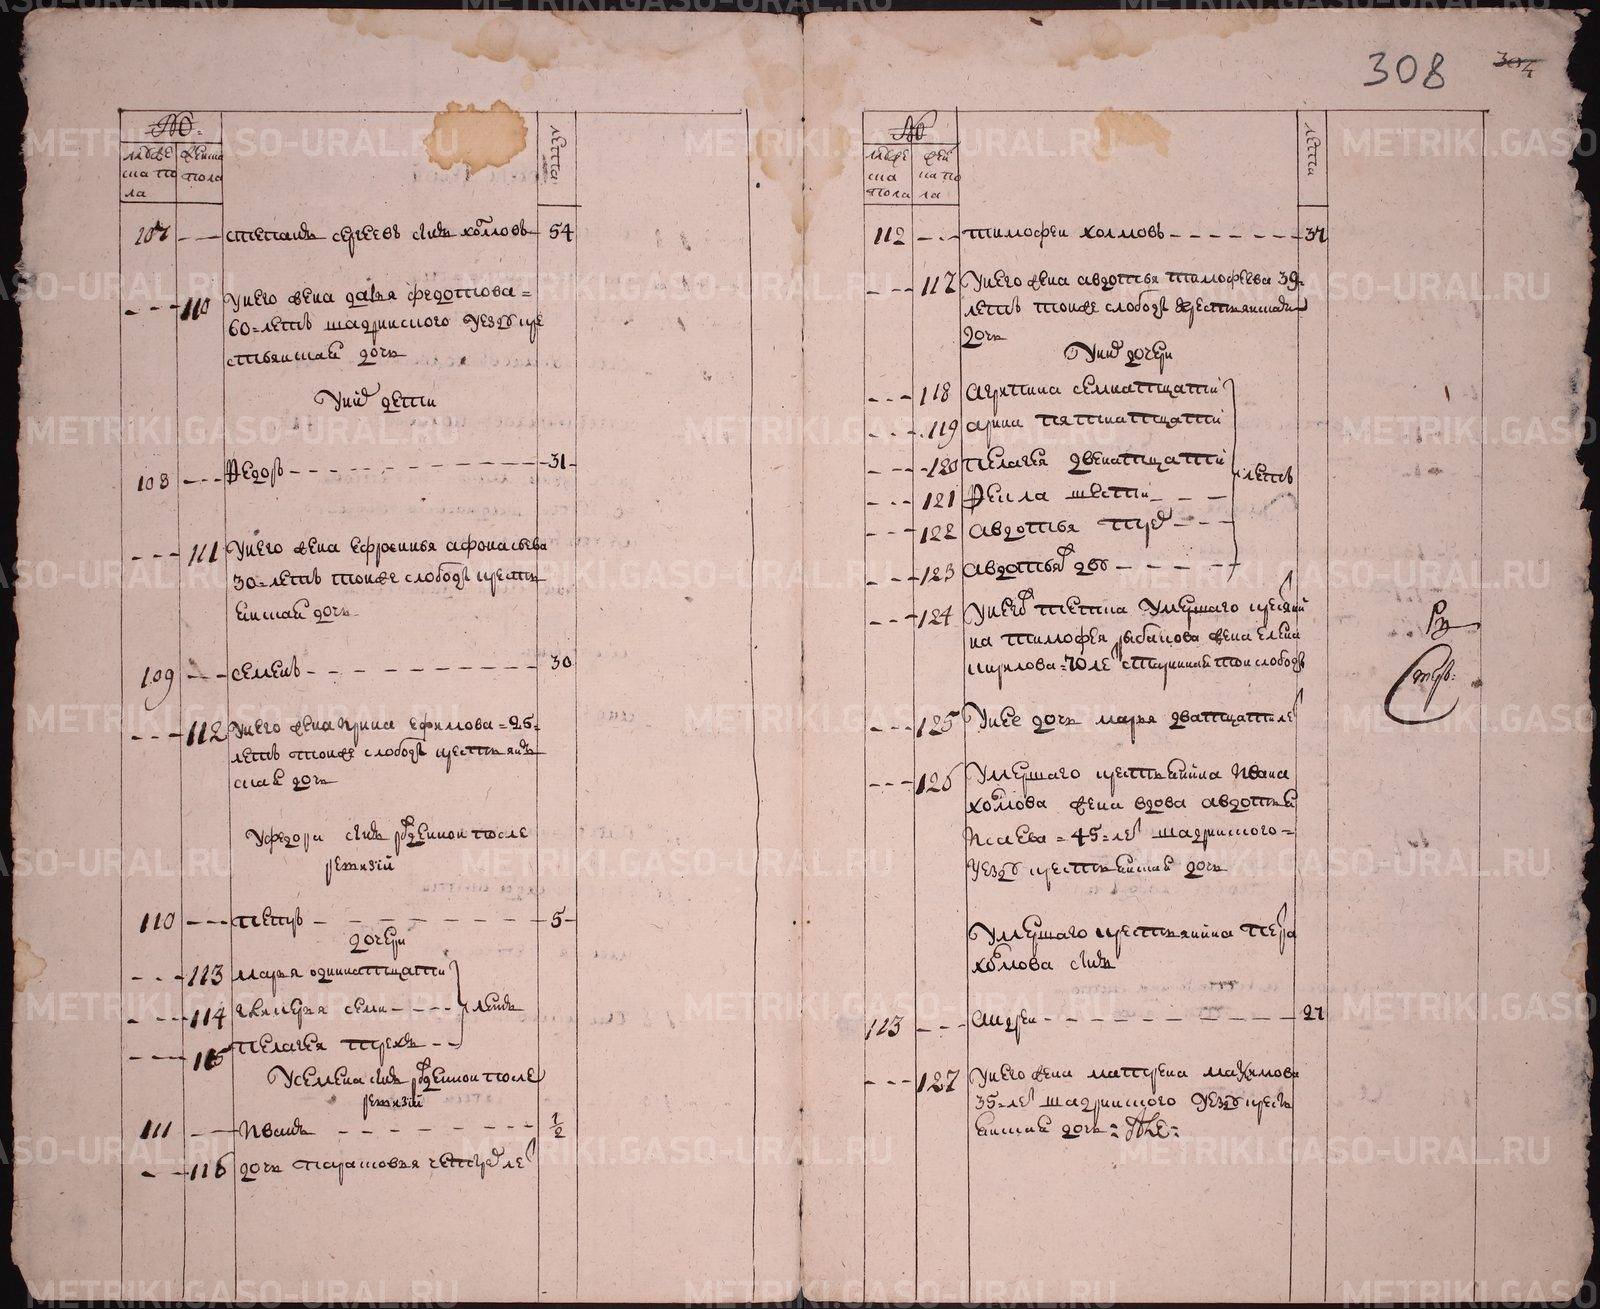 308
304
№
мужеска пола
женска пола
лета
107 степанъ сергеевъ сынъ холмовъ 54
110 у него жена дарья федотова
60 летъ шадринского уезду кре
стьянская дочь
у них дети
108 Федоръ 31
111 у него жена ефросинья афонасьева
30 летъ той же слободы кресть
янская дочь
109 семенъ 30
112 у него жена ирина ефимова 26
летъ той же слободы крестьянъ
ская дочь
у федора сынъ рожденной после
ревизiи
110 петръ 5
дочери
113 марья одиннатцати
114 семи летъ
115 пелагея трехъ
у семена сынъ рожденной после
ревизiи
111 иванъ 1/2
116 дочь парасковья четырех ле
№
мужеска пола
женска пола
лета
112 тимофеи холмовъ 37
117 у него жена авдотья тимофеева 39
летъ той же слободы крестьянская
дочь
у них дочери
118 агрипина семнатцати
119 арина пятнатцати
120 пелагея двенатцати летъ
121 Фекла шести
122 авдотья трех
123 авдотья дву
124 у него тетка умершаго крестьяни
на тимофея рыбакова жена елена
кирилова 70 ле старинная той слободы
125 у нее дочь марья дватцати ле
126 умершаго крестьянина ивана
холмова жена вдова авдотья
исаева 45 ле шадринского
уезду крестьянская дочь
умершаго крестьянина петра
холмова сынъ
113 андреи 27
127 у него жена матрена максимова
35 ле шадринского уезду кресть
янская дочь